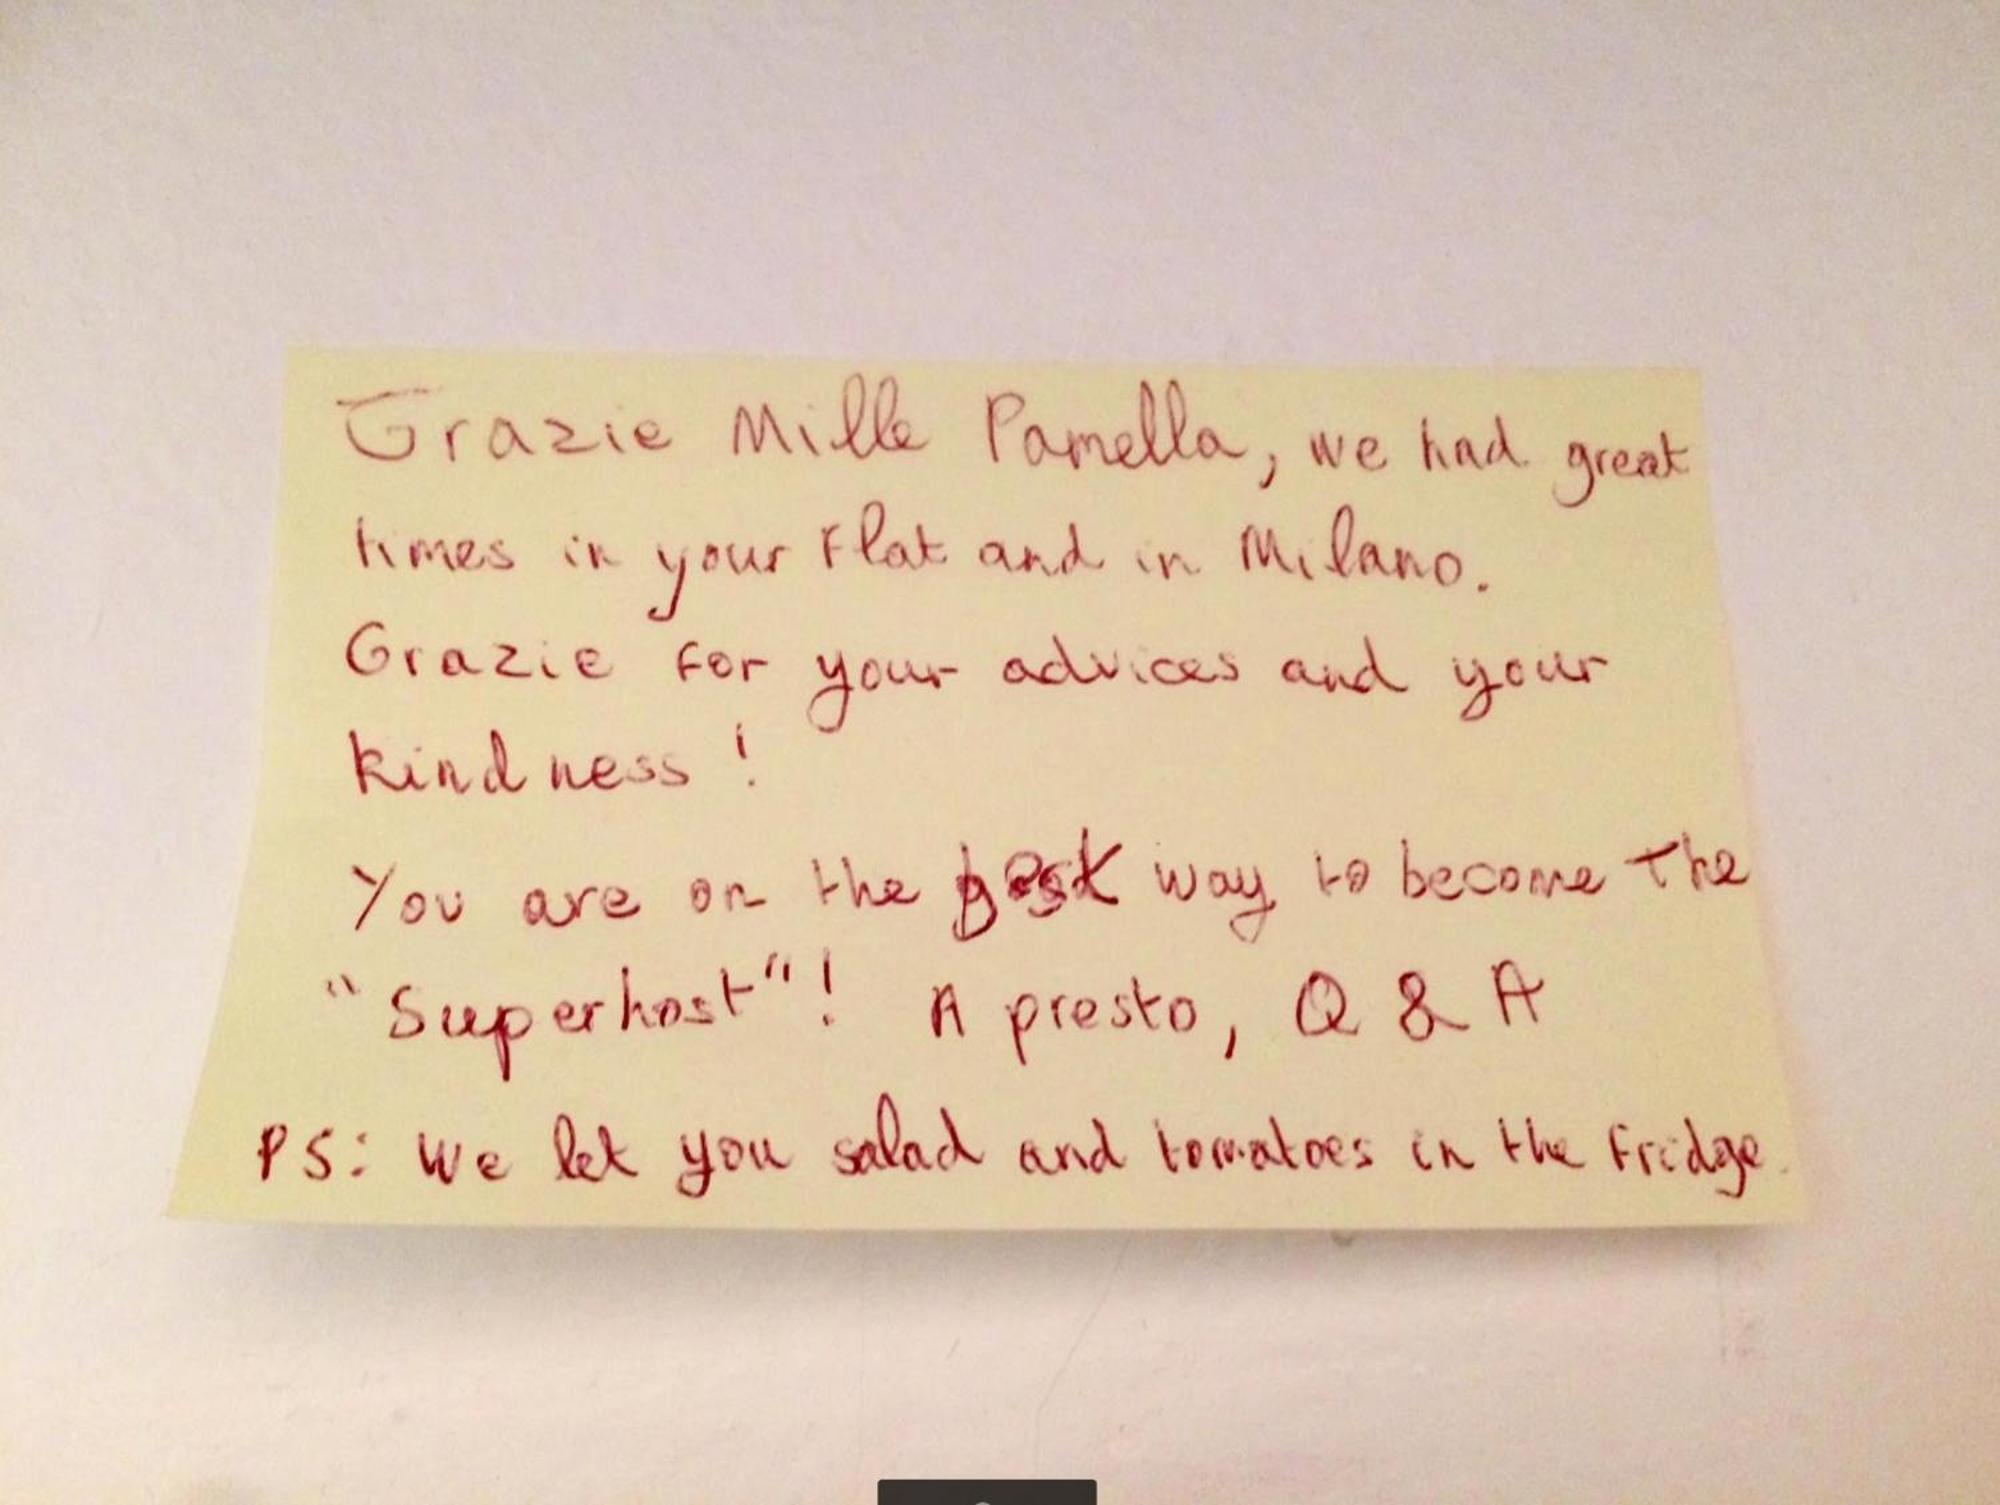 Grazie Mille Pamella, we had great
times in your flat and in Milano.
Grazie for your advices and your
kindness !
You are on the best way to become the
"Superhost"! A presto, Q & A
PS: We let you salad and tomatoes in the fridge.